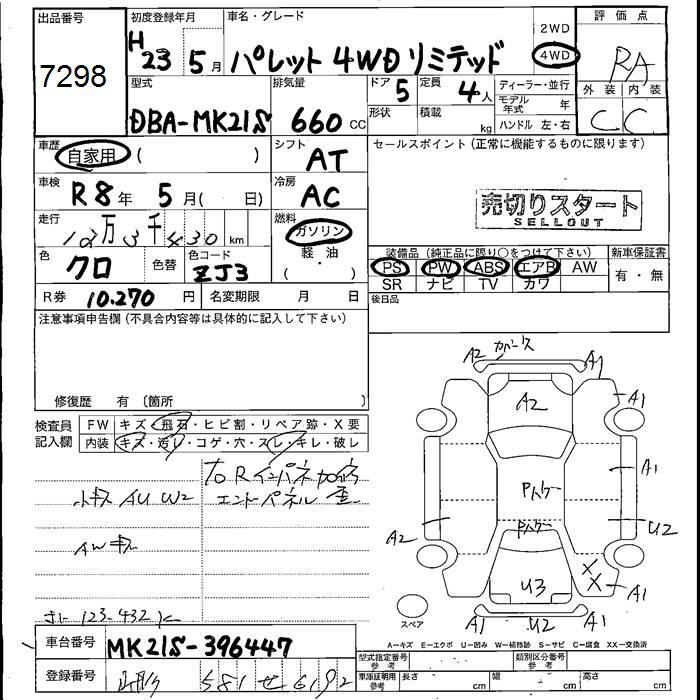 出品番号
7298
初度登録年月
H23 5月
車名・グレード
パレット 4WD リミテッド
2WD
4WD
評価点
RA
外装 内装
C C
型式
DBA-MK21S
排気量
660 cc
ドア 5
定員 4人
形状
積載 kg
ディーラー・並行
モデル年式 年
ハンドル 左・右
車歴
自家用 ( )
シフト
AT
セールスポイント (正常に機能するものに限ります)
車検
R8年 5月( 日)
冷房
AC
売切りスタート
SELLOUT
走行
12万3千430 km
燃料
ガソリン
軽・油
( )
色
クロ
色替
色コード
ZJ3
装備品 (純正品に限り○をつけて下さい)
PS PW ABS エアB AW
SR ナビ TV カワ
新車保証書
有・無
R券 10.270 円
名変期限 月 日
後日品
注意事項申告欄 (不具合内容等は具体的に記入して下さい)
修復歴 有 (箇所 )
検査員記入欄
FW キズ・飛石・ヒビ割・リペア跡・X要
内装 キズ・汚レ・コゲ・穴・スレ・キレ・破レ
右Rインパネ
エンドパネル 歪
小キズ AU W2
AWキズ
123.432 k
A2
A1
A1
A2
A1
U2
A2
U3
A1
A1
U2
A1
XX
スペア
A－キズ E－エクボ U－凹み W－補修跡 S－サビ C－腐食 XX－交換済
車台番号
MK21S-396447
登録番号
581 せ 6192
型式指定番号 参考
類別区分番号 参考
車庫証明用 参考
長さ cm
幅 cm
高さ cm